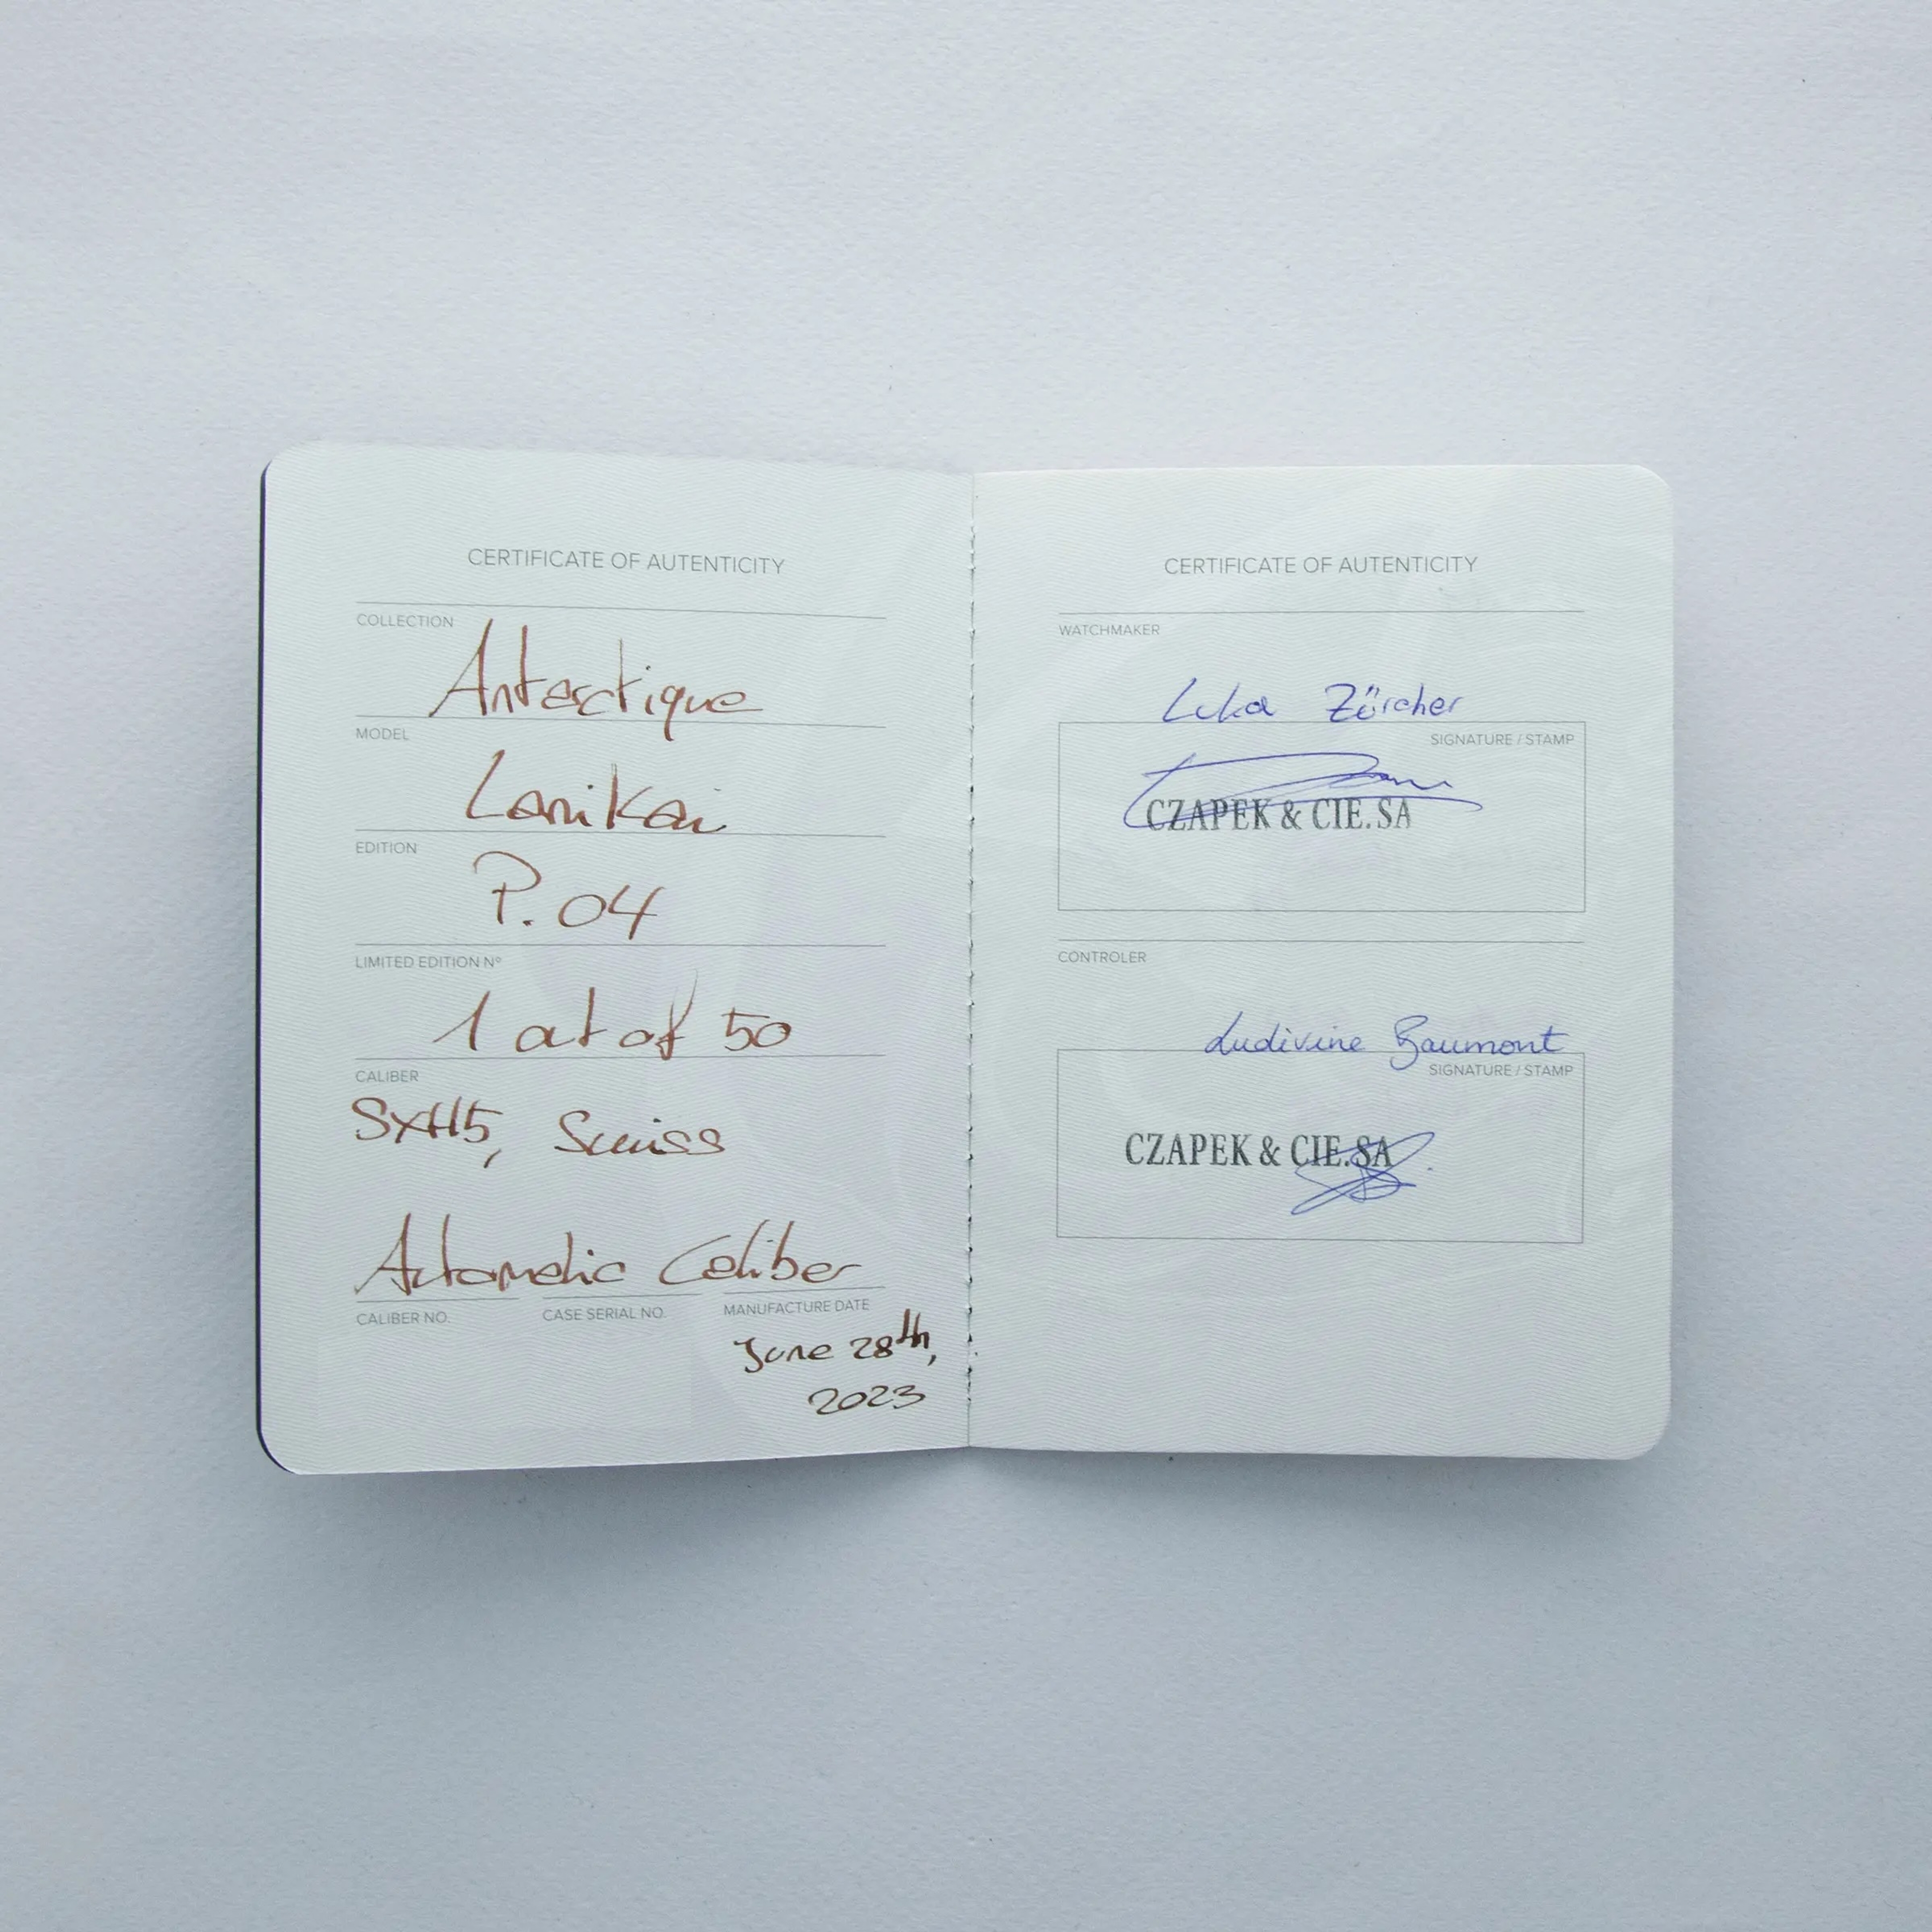 CERTIFICATE OF AUTENTICITY
COLLECTION
Antarctique
MODEL
Lanikai
EDITION
P.04
LIMITED EDITION Nº
1 out of 50
CALIBER
SXH5, Swiss
Automatic Caliber
CALIBER NO. CASE SERIAL NO. MANUFACTURE DATE
June 28th,
2023
CERTIFICATE OF AUTENTICITY
WATCHMAKER
Luka Zürcher
SIGNATURE / STAMP
CZAPEK & CIE.SA
CONTROLER
Ludivine Baumont
SIGNATURE / STAMP
CZAPEK & CIE.SA